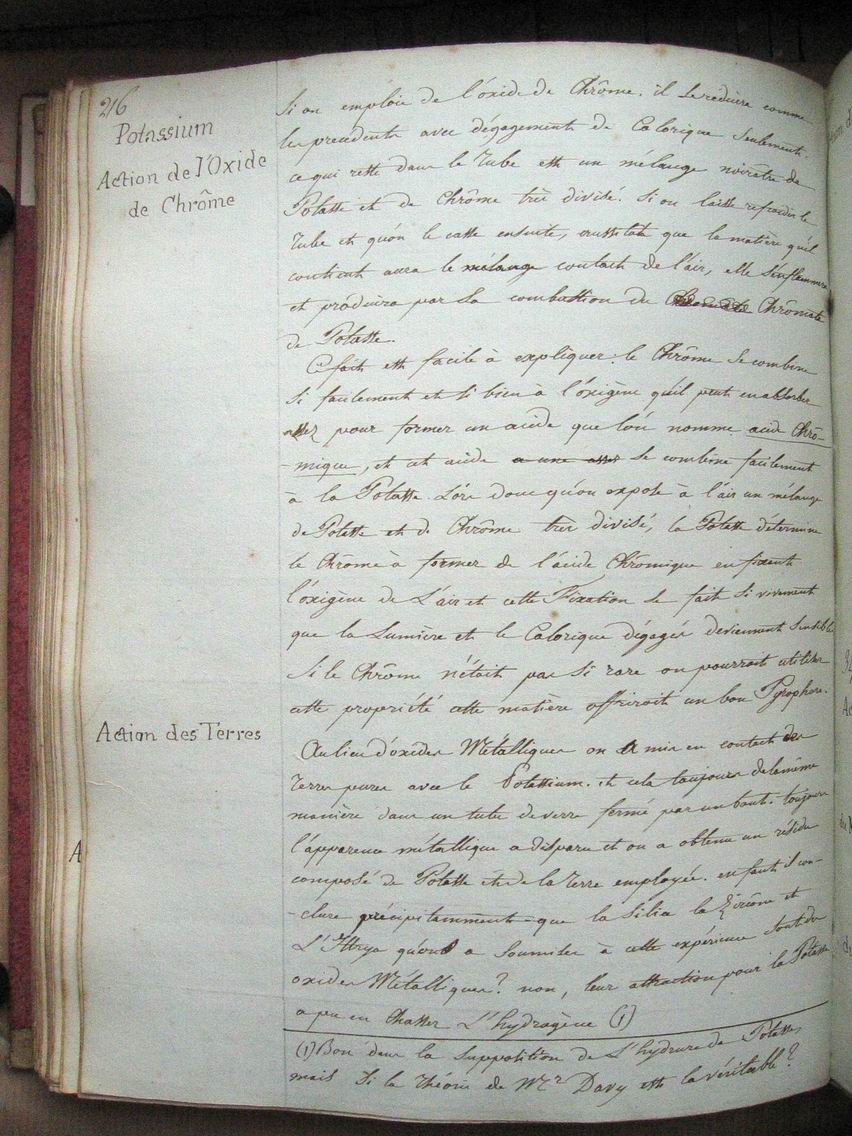 216
Potassium
Action de l'Oxide
de Chrôme
Si on emploie de l'oxide de Chrôme. il se reduira comme
les precedents avec dégagement de Calorique seulement.
ce qui reste dans le Tube est un mélange noirâtre de
Potasse et de Chrôme très divisé. Si on laisse refroidir le
Tube et qu'on le casse ensuite, aussitôt que la matière qu'il
contient aura le mélange contact de l'air, elle s'enflammera
et produira par sa combustion du Chrômate
de Potasse.
Ce fait est facile à expliquer: le Chrôme se combine
si facilement et si bien à l'oxigène qu'il peut en absorber
assez pour former un acide que l'on nomme acide Chrô-
-mique, et cet acide a une asses se combine facilement
à la Potasse. Lors donc qu'on expose à l'air un mélange
de Potasse et de Chrôme très divisé, la Potasse détermine
le Chrôme à former de l'acide Chrômique en fixant
l'oxigène de L'air et cette Fixation se fait si vivement
que la Lumière et le Calorique dégagés deviennent sensibles
Si le Chrôme n'étoit pas si rare on pourroit utiliser
cette propriété cette matière offriroit un bon Pyrophore.
Action des Terres
Au lieu d'oxides Métalliques on a mis en contact des
Terres pures avec le Potassium. et cela toujours de la même
manière dans un tube de verre fermé par un bout. toujours
l'apparence métallique a disparu et on a obtenu un résidu
A
composé de Potasse et de la terre employée. en faut il con-
-clure précipitamment que la Silice la Zircône et
L'Ittrya qu'on a soumises à cette expérience sont des
oxides Métalliques? non, leur attraction pour la Potasse
a pu en chasser L'hydrogène (1)
(1) Bon dans la supposition de L'hydrure de Potasse
mais Si la théorie de Mr Davy est la véritable?